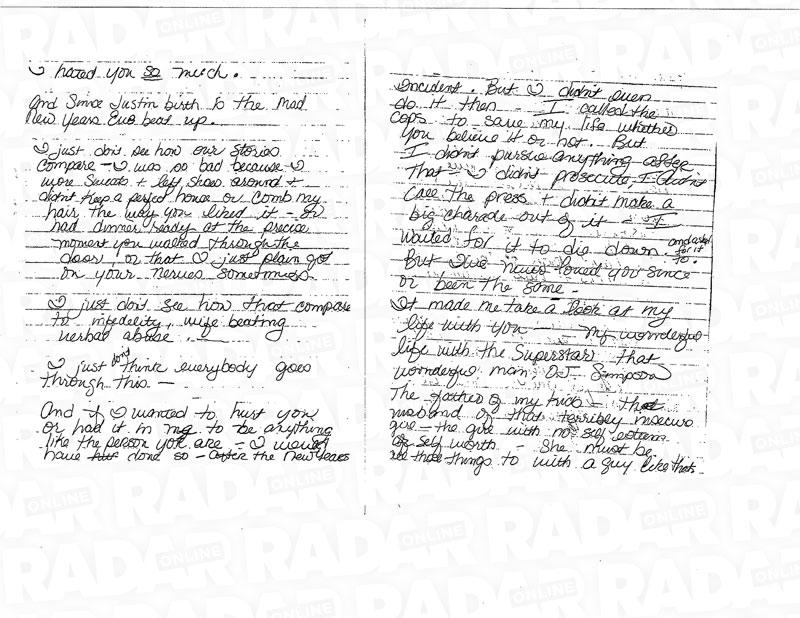 I hated you so much.
And since Justin birth is the mad
New Years Eve beat up.
I just don't see how our stories
compare - I was so bad because I
wore sweats & left shoes around &
didn't keep a perfect house or comb my
hair the way you liked it - or
had dinner ready at the precise
moment you walked through the
door or that I just plain got
on your nerves sometimes.
I just don't see how that compares
to infidelity, wife beating
verbal abuse -
I just don't think everybody goes
through this -
And if I wanted to hurt you
or had it in me to be anything
like the person you are - I would
have done so - after the New Years
incident. But I didn't even
do it then - I called the
cops to save my life whether
you believe it or not. But
I didn't pursue anything after
that - I didn't prosecute, I didn't
call the press & didn't make a
big charade out of it - I
waited for it to die down and asked for it to.
But I've never loved you since
or been the same -
It made me take a look at my
life with you - my wonderful
life with the superstar that
wonderful man O.J. Simpson
The father of my kids - that
husband of that terribly insecure
girl - the girl with no self esteem
or self worth - She must be
things to with a guy like that.
RADAR ONLINE